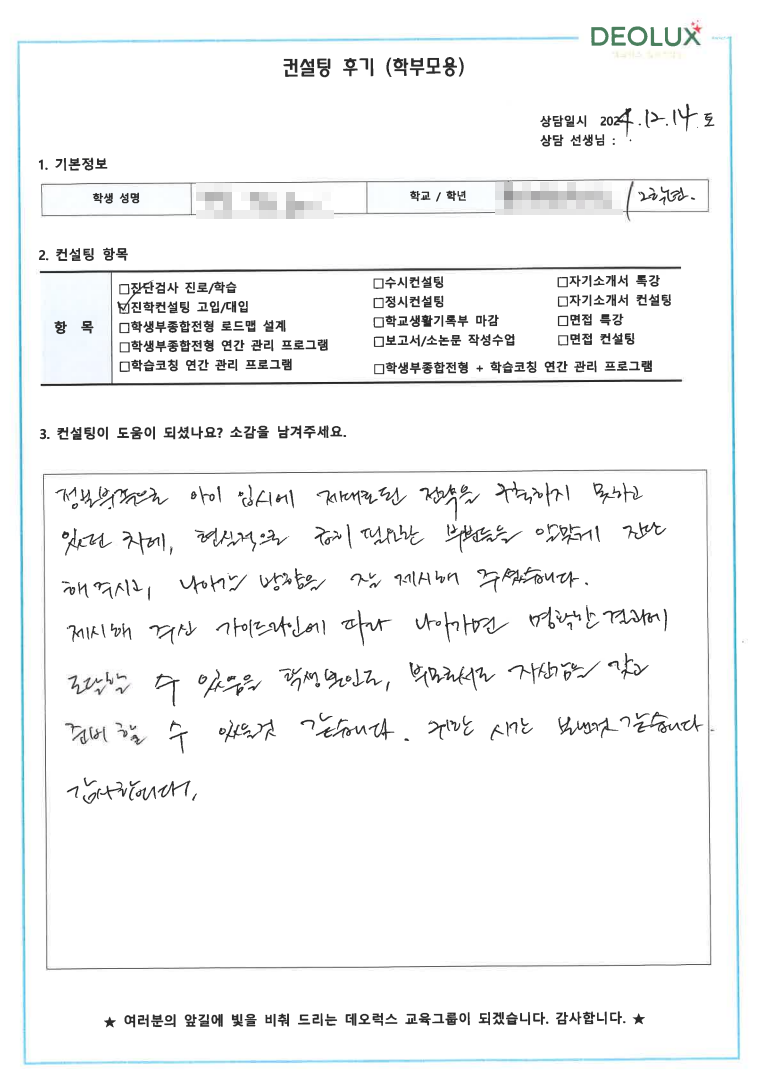 DEOLUX
컨설팅 후기 (학부모용)
상담일시 2024.12.14. 토
상담 선생님 :
1. 기본정보
학생 성명 학교 / 학년 / 2학년.
2. 컨설팅 항목
항 목
□진단검사 진로/학습 □수시컨설팅 □자기소개서 특강
☑진학컨설팅 고입/대입 □정시컨설팅 □자기소개서 컨설팅
□학생부종합전형 로드맵 설계 □학교생활기록부 마감 □면접 특강
□학생부종합전형 연간 관리 프로그램 □보고서/소논문 작성수업 □면접 컨설팅
□학습코칭 연간 관리 프로그램 □학생부종합전형 + 학습코칭 연간 관리 프로그램
3. 컨설팅이 도움이 되셨나요? 소감을 남겨주세요.
정보부족으로 아이 입시에 제대로된 전략을 구축하지 못하고
있던 차에, 현실적으로 필요한 부분들을 알맞게 진단
해주시고, 나아갈 방향을 잘 제시해 주셨습니다.
제시해 주신 가이드라인에 따라 나아가면 명확한 결과에
도달할 수 있음을 학생본인도, 부모로서도 자신감을 갖고
준비할 수 있을것 같습니다. 귀한 시간 보낸것 같습니다.
감사합니다.
★ 여러분의 앞길에 빛을 비춰 드리는 데오럭스 교육그룹이 되겠습니다. 감사합니다. ★